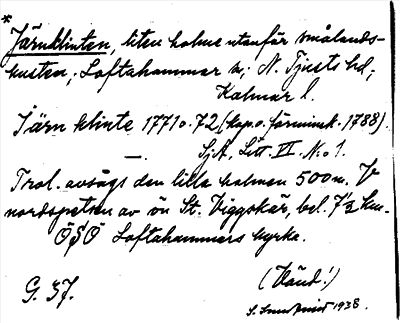 *
Järnklinten, liten holme utanför smålands-
kusten; Loftahammar sn; N. Tjusts hd;
Kalmar l.
Järn klinte 1771 o. 72 (kap. o. förminsk. 1788).
— SjA, Litt. VI. N:o 1.
Trol. avsågs den lilla holmen 500 m. V
nordspetsen av ön St. Viggskär, bel. 7½ km.
ÖSÖ Loftahammars kyrka.
G. 37. (Vänd!)
1938.